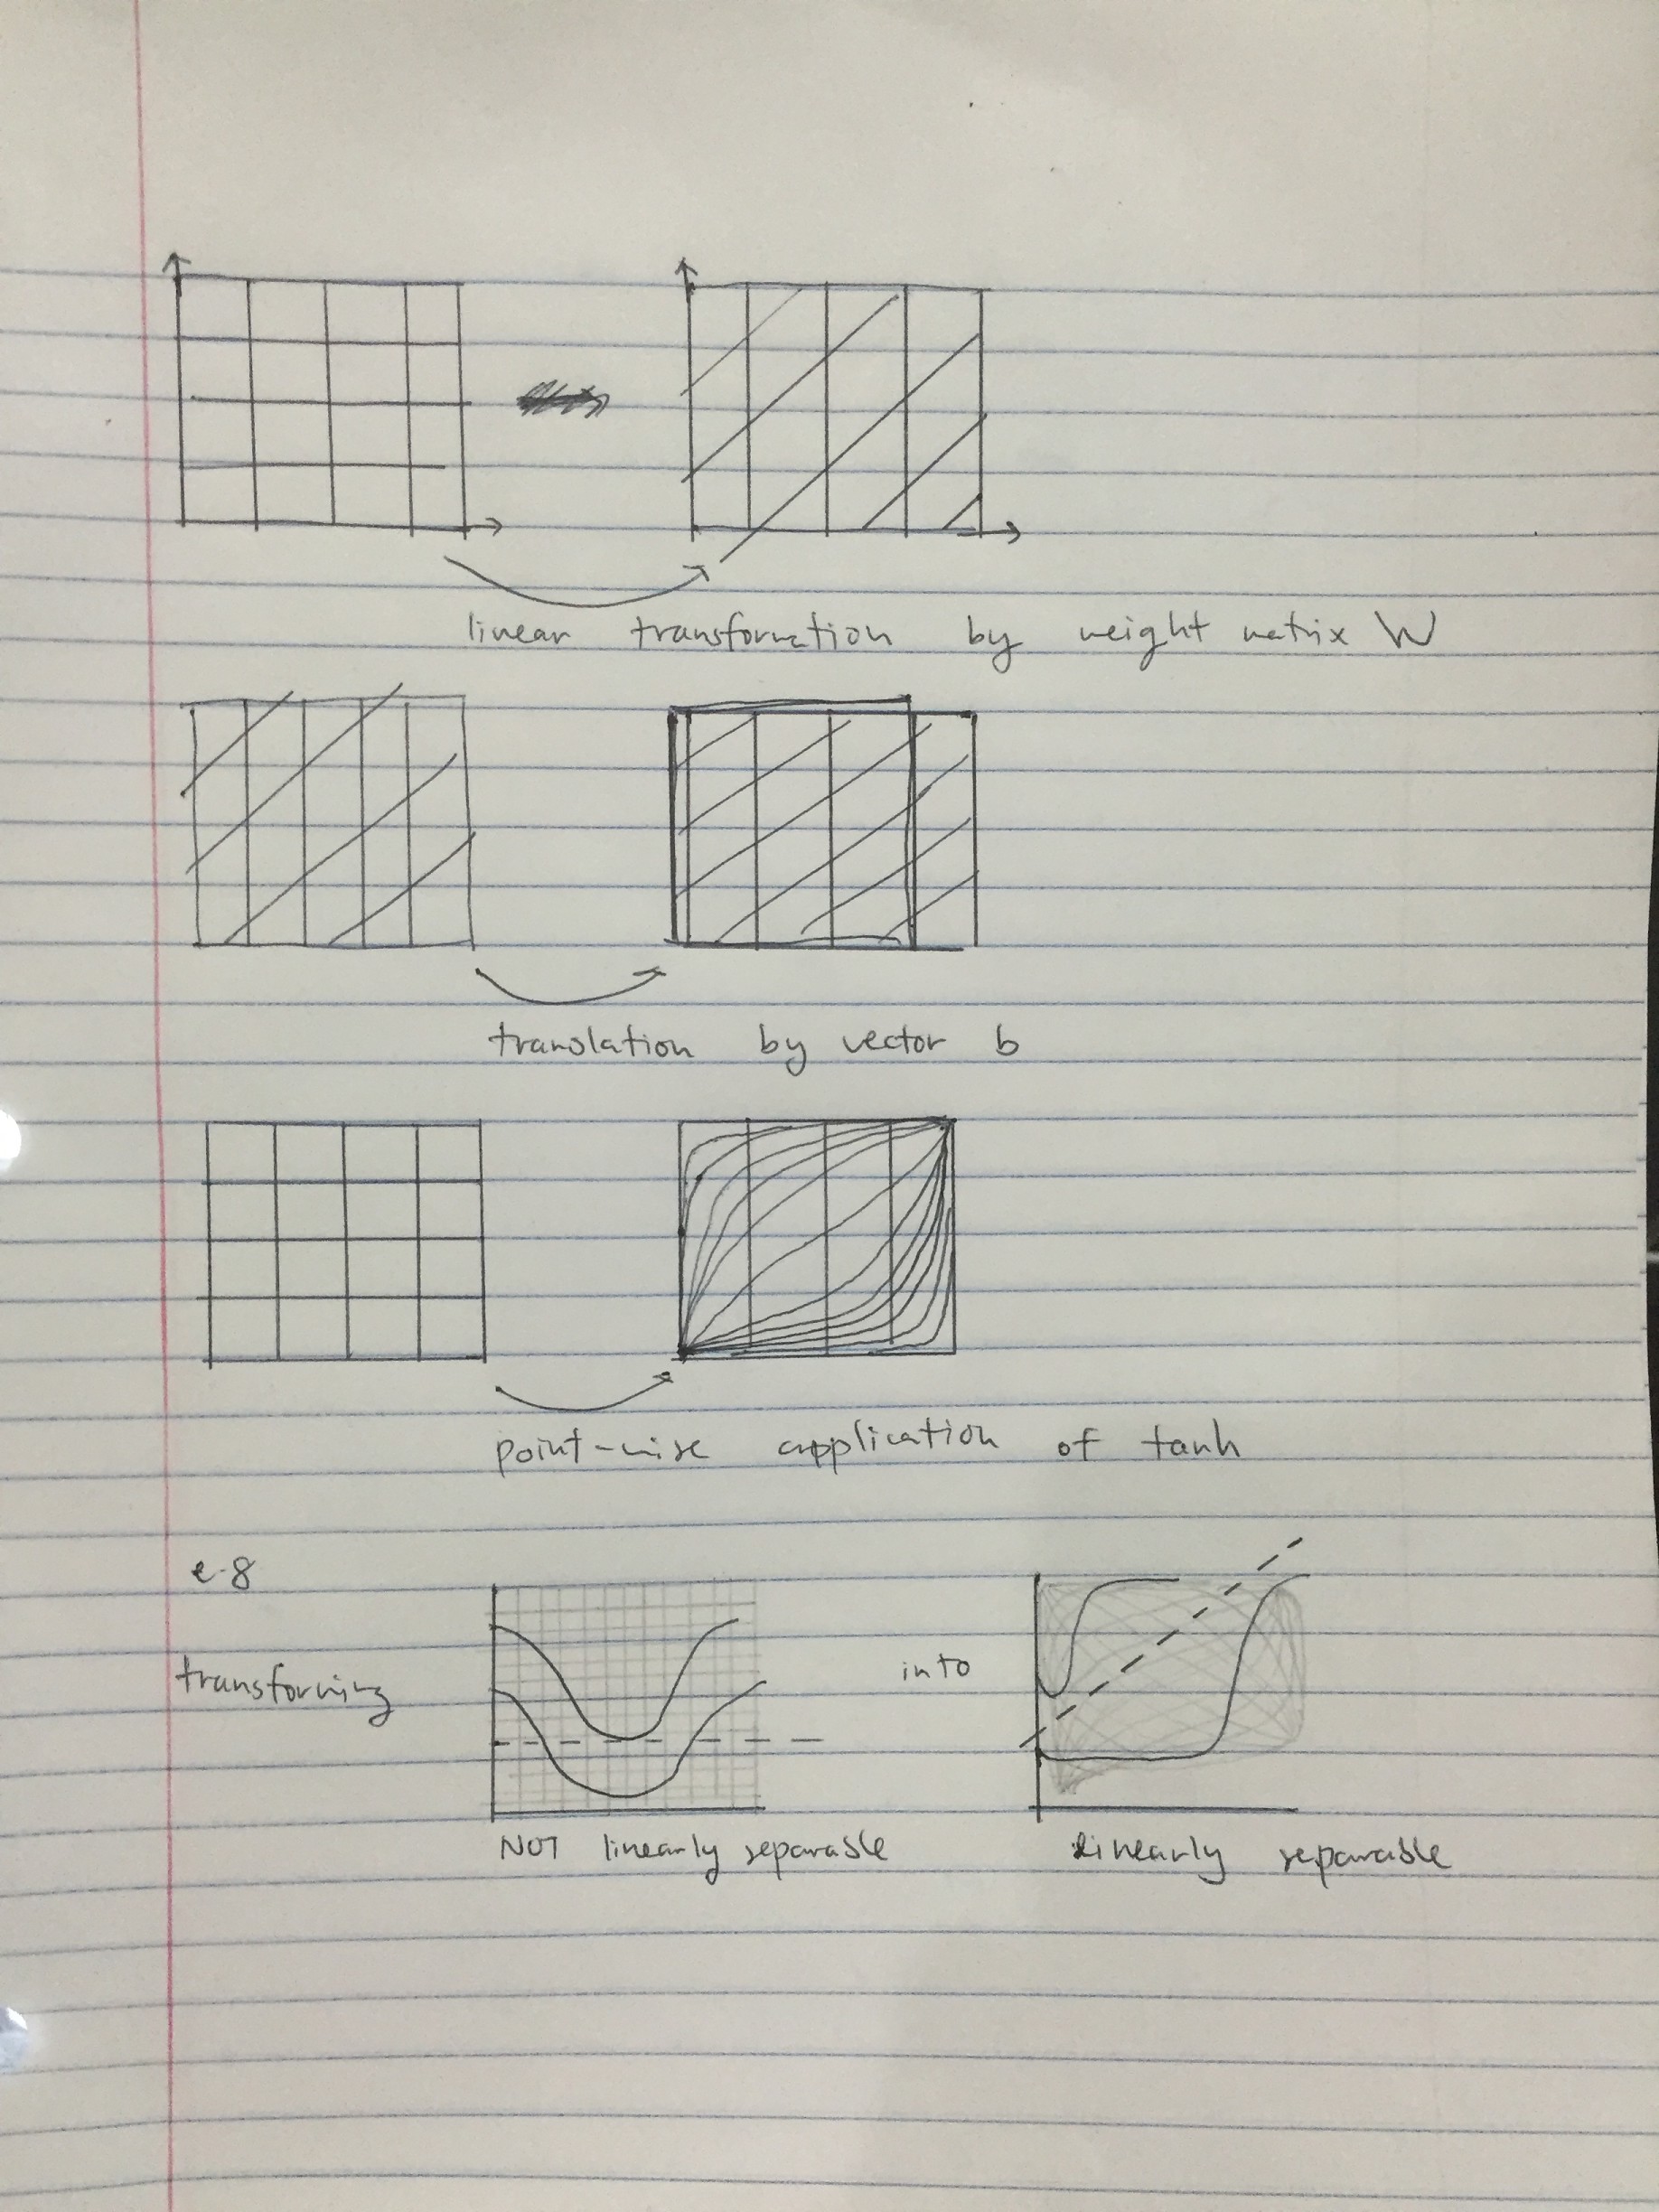 linear transformation by weight matrix W
translation by vector b
point-wise application of tanh
e.g
transforming
into
NOT linearly separable
linearly separable